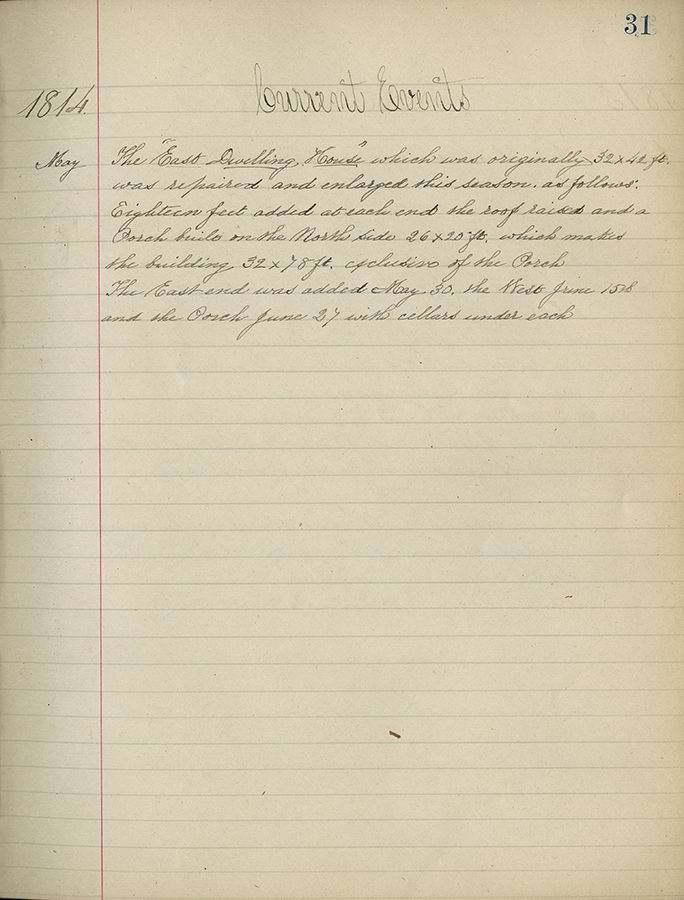 31
Current Events
1814.
May The "East Dwelling House" which was originally 32 x 42 ft.
was repaired and enlarged this season, as follows:
Eighteen feet added at each end the roof raised and a
Porch built on the North side 26 x 20 ft. which makes
the building 32 x 78 ft. exclusive of the Porch
The East end was added May 30, the West June
and the Porch June 27 with cellars under each